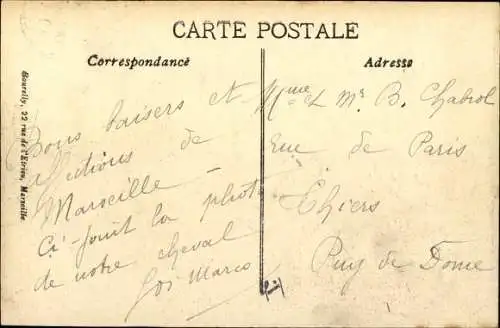 CARTE POSTALE
Correspondance
Adresse
Bourelly, 22 rue de l'Etrieu, Marseille
Bons baisers et
affections de
Marseille –
Ci-joint la photo
de notre cheval
Marco
Mme et Mr B. Chabrol
rue de Paris
Thiers
Puy de Dome